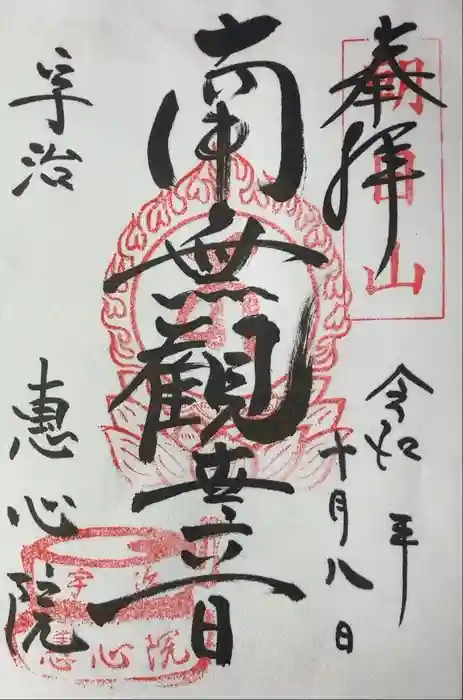 奉拝
朝日山
令和 年
十月八日
南無觀世音
宇治
恵心院
宇治
恵心院